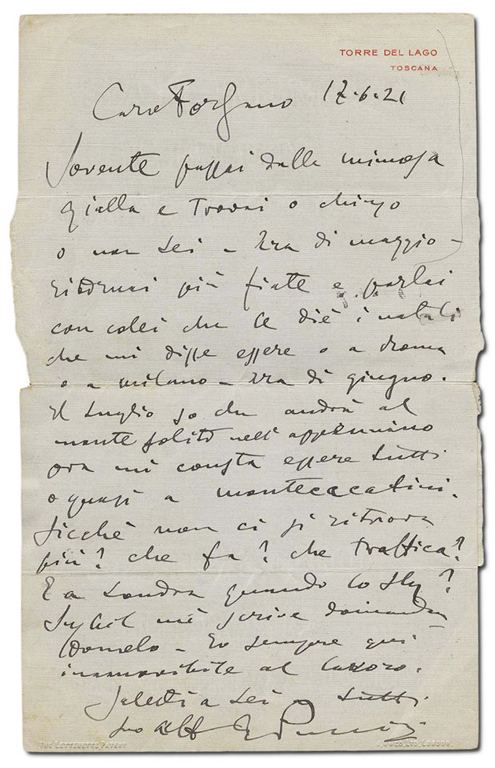 TORRE DEL LAGO
TOSCANA
Caro Forzano 17-6-21
Sovente passai dalla mimosa
gialla e trovai o chiuso
o non Lei - Era di maggio -
ritornai più fiate e parlai
con colei che Le diè i natali
che mi disse essere o a Roma
o a Milano - Era di giugno.
Il Luglio so che andrà al
monte solito nell'appennino
ora mi consta essere tutti
o quasi a montecatini.
Sicchè non ci si ritrova
più? che fa? che traffica?
E a Londra quando lo Sly?
Sybil me scrive domandan
domelo - Io sempre qui
al lavoro.
Saluti a Lei e tutti
suo aff GPuccini